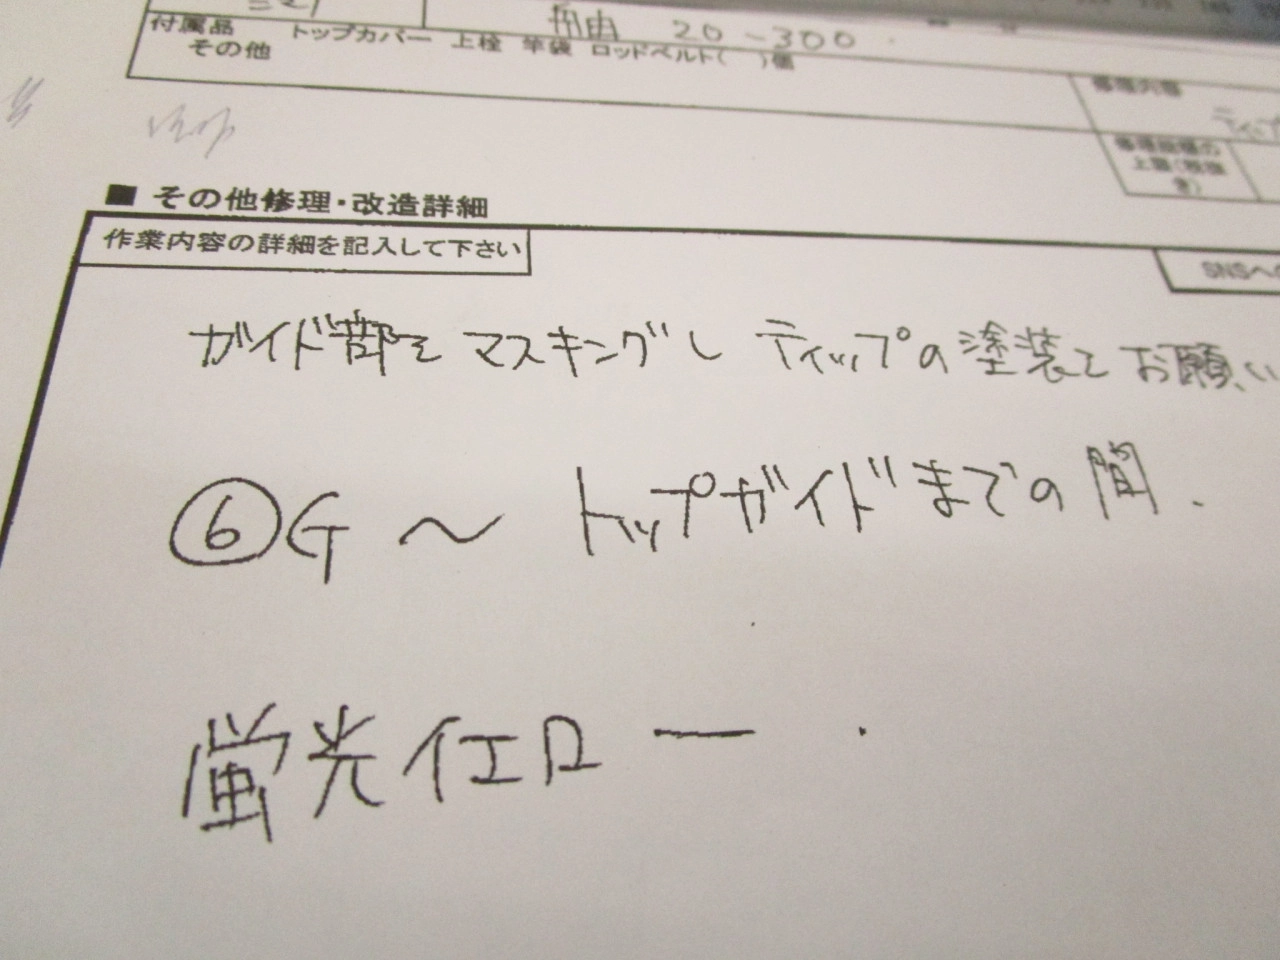 20-300
付属品 トップカバー 上栓 竿袋 ロッドベルト( )個
その他
修理内容
■ その他修理・改造詳細
作業内容の詳細を記入して下さい
SNSへの
ガイド部を マスキングし ティップの塗装を お願い
⑥G ～ トップガイドまでの間.
蛍光イエロー.